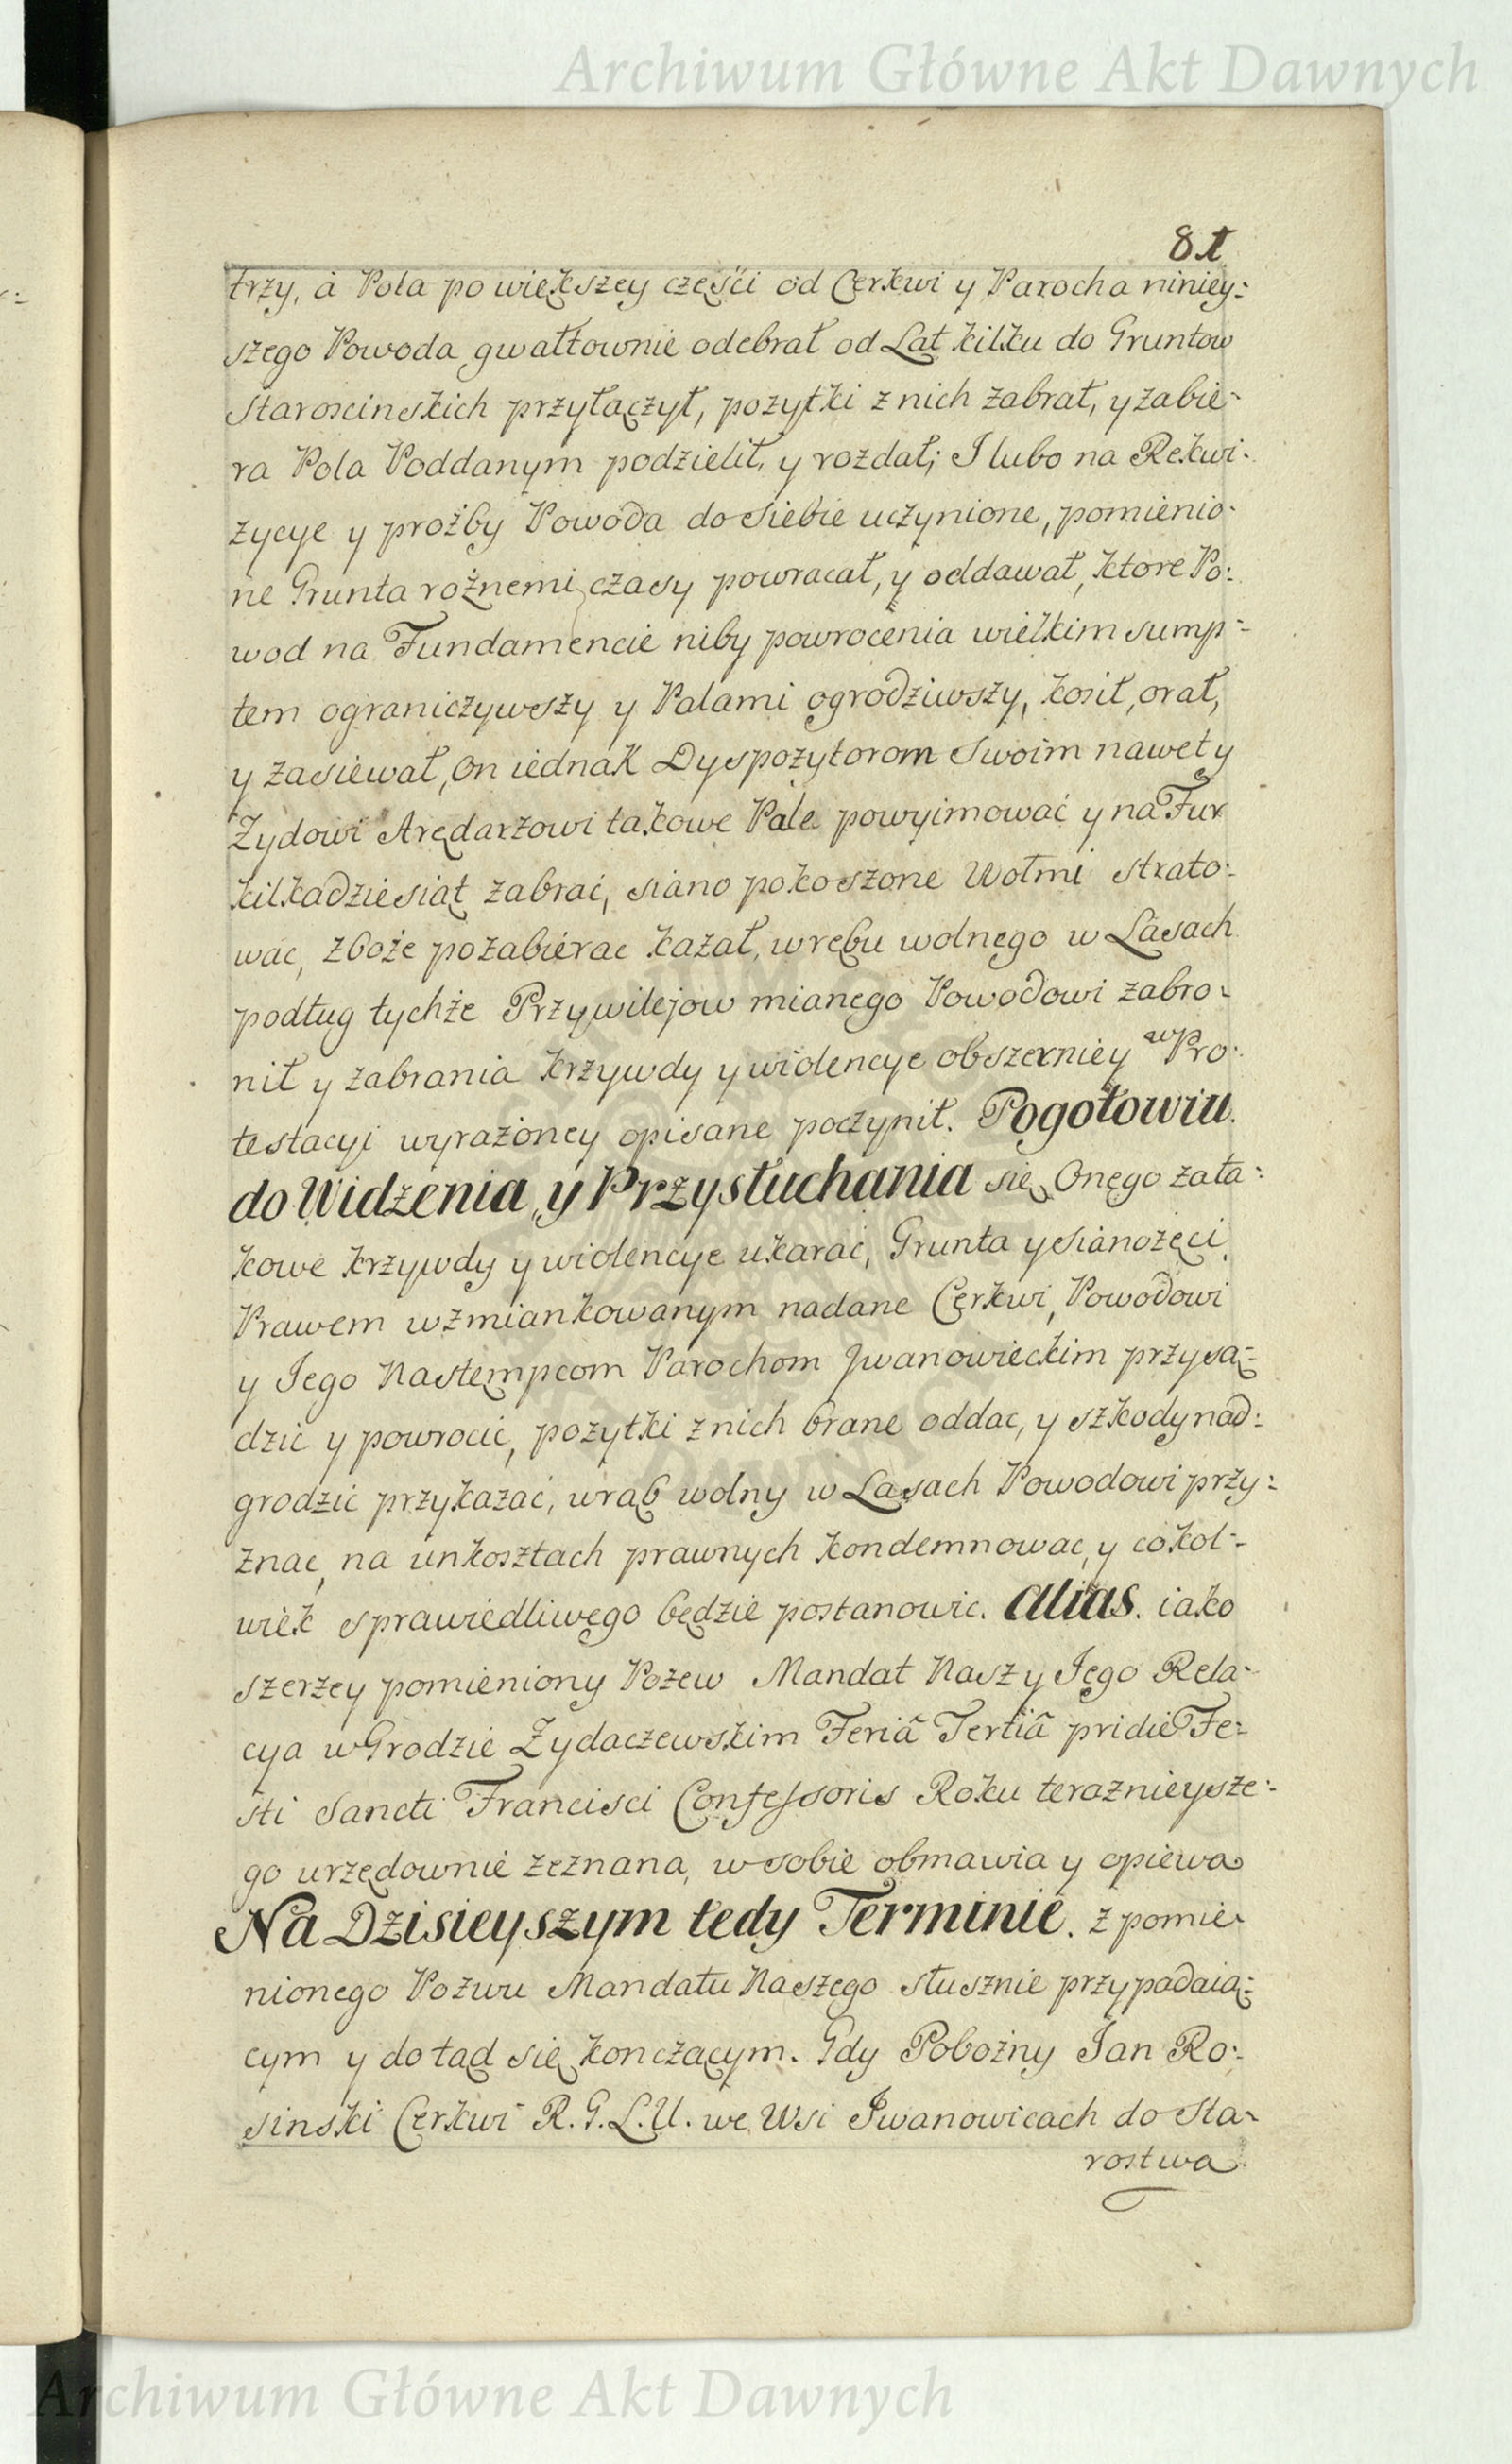 Archiwum Główne Akt Dawnych
81
trzy, à Pola po większey części od Cerkwi y Parocha niniey:
szego Powoda gwałtownie odebrał od Lat kilku do Gruntow
Staroscinskich przyłączył, pozytki z nich zabrał, y zabie-
ra Pola Poddanym podzielił, y rozdał; I lubo na Rekwi-
zycye y proźby Powoda do siebie uczynione, pomienio-
ne Grunta rożnemi czasy powracał, y oddawał, ktore Po:
wod na Fundamencie niby powrocenia wielkim sump-
tem ograniczywszy y Palami ogrodziwszy, kosił, orał,
y zasiewał, on iednak Dyspozytorom swoim nawet y
Zydowi Arędarzowi takowe Pale powyimować y na Fur
kilkadziesiąt zabrać, siano pokoszone Wołmi strato:
wac, zboże pozabierac kazał, wrębu wolnego w Lasach
podług tychże Przywilejow mianego Powodowi zabro-
nił y zabrania krzywdy y wiolencye obszerniey w Pro:
testacyi wyrażoney opisane poczynił. Pogotowiu.
do Widzenia, y Przysłuchania się Onego za ta:
kowe krzywdy y wiolencye ukarać, Grunta y sianożęci
Prawem wzmiankowanym nadane Cerkwi, Powodowi
y Jego Nastempcom Parochom Jwanowieckim przysą-
dzić y powrocić, pozytki z nich brane oddac, y szkody nad:
grodzić przykazać, wrąb wolny w Lasach Powodowi przy:
znac, na unkosztach prawnych kondemnowac, y cokol-
wiek sprawiedliwego będzie postanowic. Alias. iako
szerzey pomieniony Pozew Mandat Nasz y Jego Rela-
cya w Grodzie Zydaczewskim Feriâ Tertiâ pridie Fe-
sti Sancti Francisci Confessoris Roku teraznieysze:
go urzędownie zeznana, w sobie obmawia y opiewa
Na Dzisieyszym tedy Terminie. z pomie-
nionego Pozwu Mandatu Naszego słusznie przypadaią:
cym y do tąd się konczącym. Gdy Pobożny Jan Ro:
sinski Cerkwi R. G. L. U. we Wsi Jwanowicach do Sta-
rostwa
Archiwum Główne Akt Dawnych